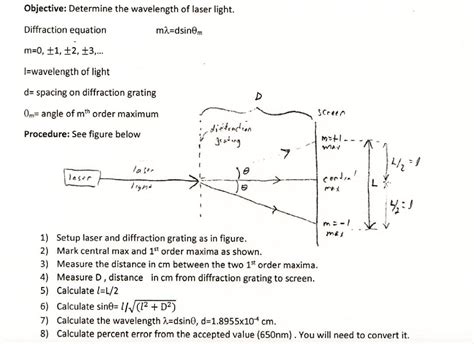 Objective: Determine the wavelength of laser light.
Diffraction equation mλ=dsinθm
m=0, ±1, ±2, ±3,...
l=wavelength of light
d= spacing on diffraction grating
θm= angle of mth order maximum
Procedure: See figure below
D
screen
diffraction
grating
m=+1
max
laser
laser
light
θ
θ
central
max
L/2 = l
L
L/2 = l
m=-1
max
1) Setup laser and diffraction grating as in figure.
2) Mark central max and 1st order maxima as shown.
3) Measure the distance in cm between the two 1st order maxima.
4) Measure D , distance in cm from diffraction grating to screen.
5) Calculate l=L/2
6) Calculate sinθ= l/√(l² + D²)
7) Calculate the wavelength λ=dsinθ, d=1.8955x10⁻⁴ cm.
8) Calculate percent error from the accepted value (650nm) . You will need to convert it.